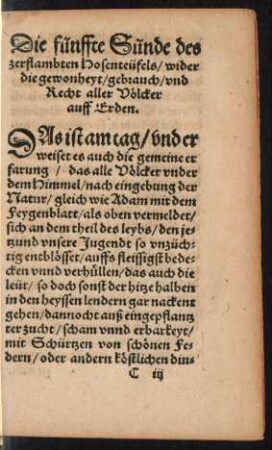 Die fünffte Sünde des
zerflambten Hosenteüfels/ wider
die gewonheyt/ gebrauch/ vnd
Recht aller Völcker
auff Erden.
DAs ist am tag/ vnd er
weiset es auch die gemeine er
farung / das alle Völcker vnder
dem Himmel/ nach eingebung der
Natur/ gleich wie Adam mit dem
Feygenblatt/ als oben vermeldet/
sich an dem theil des leybs/ den jet
zund vnsere Jugendt so vnzüch-
tig entblösset/ auffs fleissigst bede-
cken vnnd verhüllen/ das auch die
leüt/ so doch sonst der hitze halben
in den heyssen lendern gar nackent
gehen/ dannocht auß eingepflantz
ter zucht/ scham vnnd erbarkeyt/
mit Schürtzen von schönen Fe-
dern/ oder andern köstlichen din-
C iij